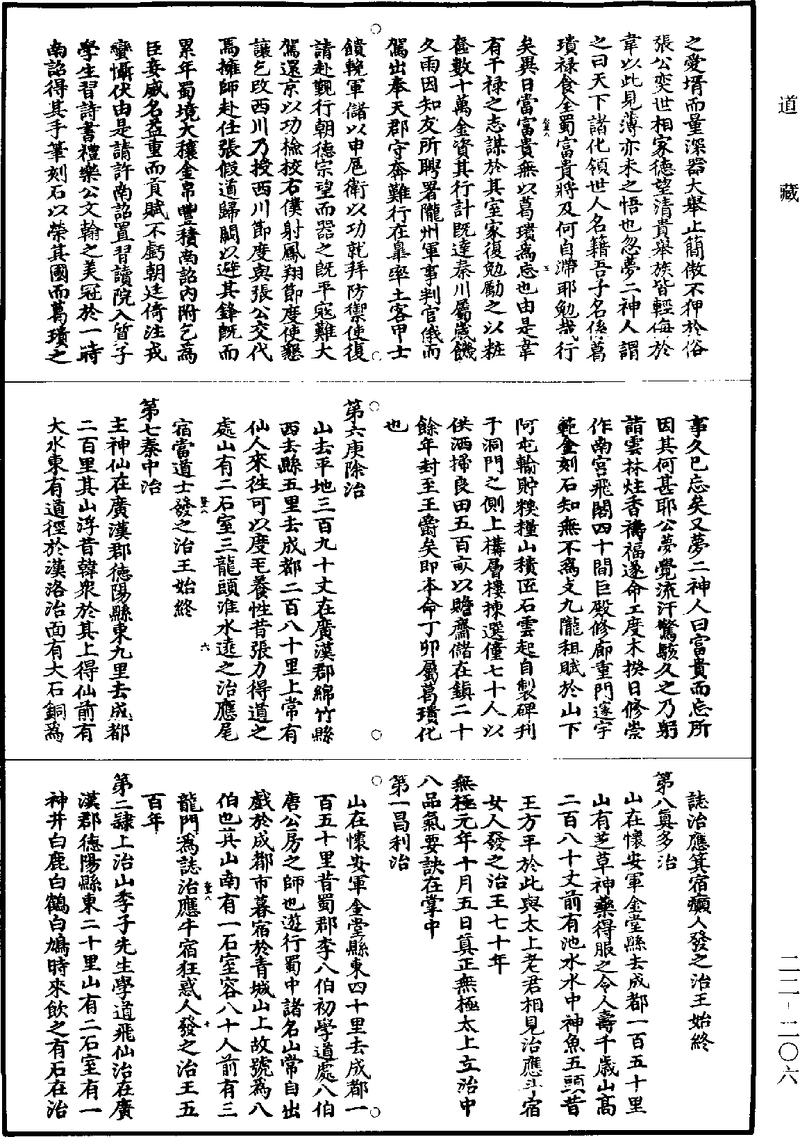 道藏
之愛壻而量深器大舉止簡傲不狎於俗
張公奕世相家德望清貴舉族皆輕侮於
韋以此見薄亦未之悟也忽夢二神人謂
之曰天下諸化領世人名籍吾子名係葛
璝祿食全蜀富貴將及何自滯耶勉哉行
矣異日當富貴無以葛璝爲忘也由是韋
有干祿之志謀於其室家復勉勵之以粧
奩數十萬金資其行計既達秦川屬歲饑
久雨因知友所聘署隴州軍事判官俄而
駕出奉天郡守奔難行在皐率土客甲士
饋輓軍儲以申扈衛以功就拜防禦使復
請赴覲行朝德宗望而器之既平寇難大
駕還京以功檢校右僕射鳳翔節度使懇
讓乞改西川乃授西川節度與張公交代
焉擁師赴任張假道歸闕以避其鋒既而
累年蜀境大穰金帛豐積南詔內附乞爲
臣妾威名益重而貢賦不虧朝廷倚注戎
蠻懾伏由是請許南詔置習讀院入質子
學生習詩書禮樂公文翰之美冠於一時
南詔得其手筆刻石以榮其國而葛璝之
事久已忘矣又夢二神人曰富貴而忘所
因其何甚耶公夢覺流汗驚駭久之乃躬
詣雲林炷香禱福遂命工度木揆日修崇
作南宮飛閣四十間巨殿修廊重門邃宇
範金刻石知無不爲支九隴租賦於山下
阿屯輸貯糗糧山積匠石雲起自製碑刊
于洞門之側上構層樓揀選僮七十人以
供洒掃良田五百畝以贍齋儲在鎮二十
餘年封至王爵矣即本命丁卯屬葛璝化
也
第六庚除治
山去平地三百九十丈在廣漢郡綿竹縣
西去縣五里去成都二百八十里上常有
仙人來往可以度毛養性昔張力得道之
處山有二石室三龍頭淮水遶之治應尾
宿當道士發之治王始終
第七秦中治
主神仙在廣漢郡德陽縣東九里去成都
二百里其山浮昔韓衆於其上得仙前有
大水東有道徑於漢洛治面有大石銅爲
誌治應箕宿癩人發之治王始終
第八眞多治
山在懷安軍金堂縣去成都一百五十里
山有芝草神藥得服之令人壽千歲山高
二百八十丈前有池水水中神魚五頭昔
王方平於此與太上老君相見治應斗宿
女人發之治王七十年
無極元年十月五日眞正無極太上立治中
八品氣要訣在掌中
第一昌利治
山在懷安軍金堂縣東四十里去成都一
百五十里昔蜀郡李八伯初學道處八伯
唐公房之師也遊行蜀中諸名山常自出
戲於成都市暮宿於青城山上故號爲八
伯也其山南有一石室容八十人前有三
龍門爲誌治應牛宿狂惑人發之治王五
百年
第二隷上治山李子先生學道飛仙治在廣
漢郡德陽縣東二十里山有二石室有一
神井白鹿白鶴白鳩時來飲之有石在治
二二-二〇六